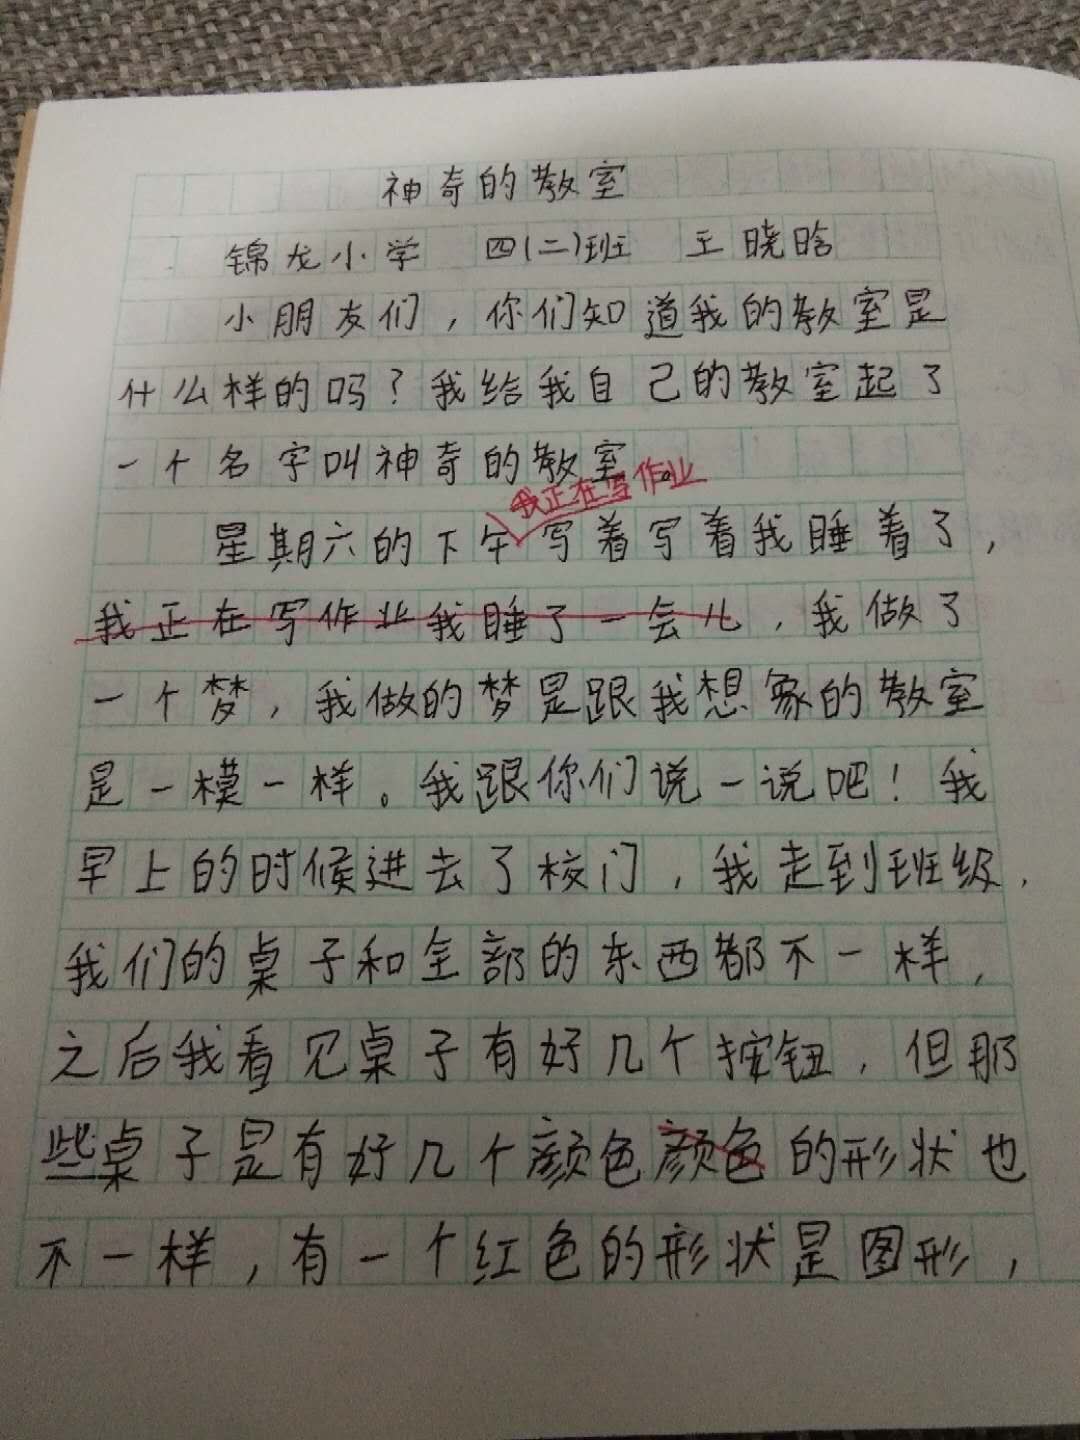 神奇的教室
锦龙小学 四(二)班 王晓晗
小朋友们，你们知道我的教室是
什么样的吗？我给我自己的教室起了
一个名字叫神奇的教室。
我正在写作业
星期六的下午写着写着我睡着了，
我正在写作业我睡了一会儿，我做了
一个梦，我做的梦是跟我想象的教室
是一模一样。我跟你们说一说吧！我
早上的时候进去了校门，我走到班级，
我们的桌子和全部的东西都不一样，
之后我看见桌子有好几个按钮，但那
些桌子是有好几个颜色颜色的形状也
不一样，有一个红色的形状是图形，